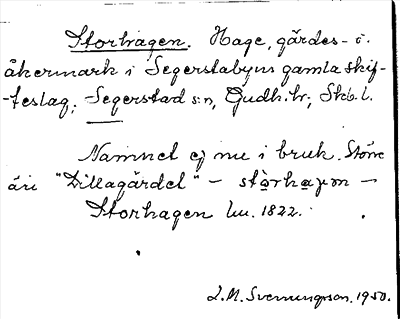 Storhagen. Hage, gärdes- o.
åkermark i Segerstabyns gamla skif-
-teslag; Segerstad s:n, Gudh. hr, Skb. l.
Namnet ej nu i bruk. Större
än "Dillagärdet" — stòrhaγən —
Storhagen lm. 1822.
L. M. Svenungsson. 1950.